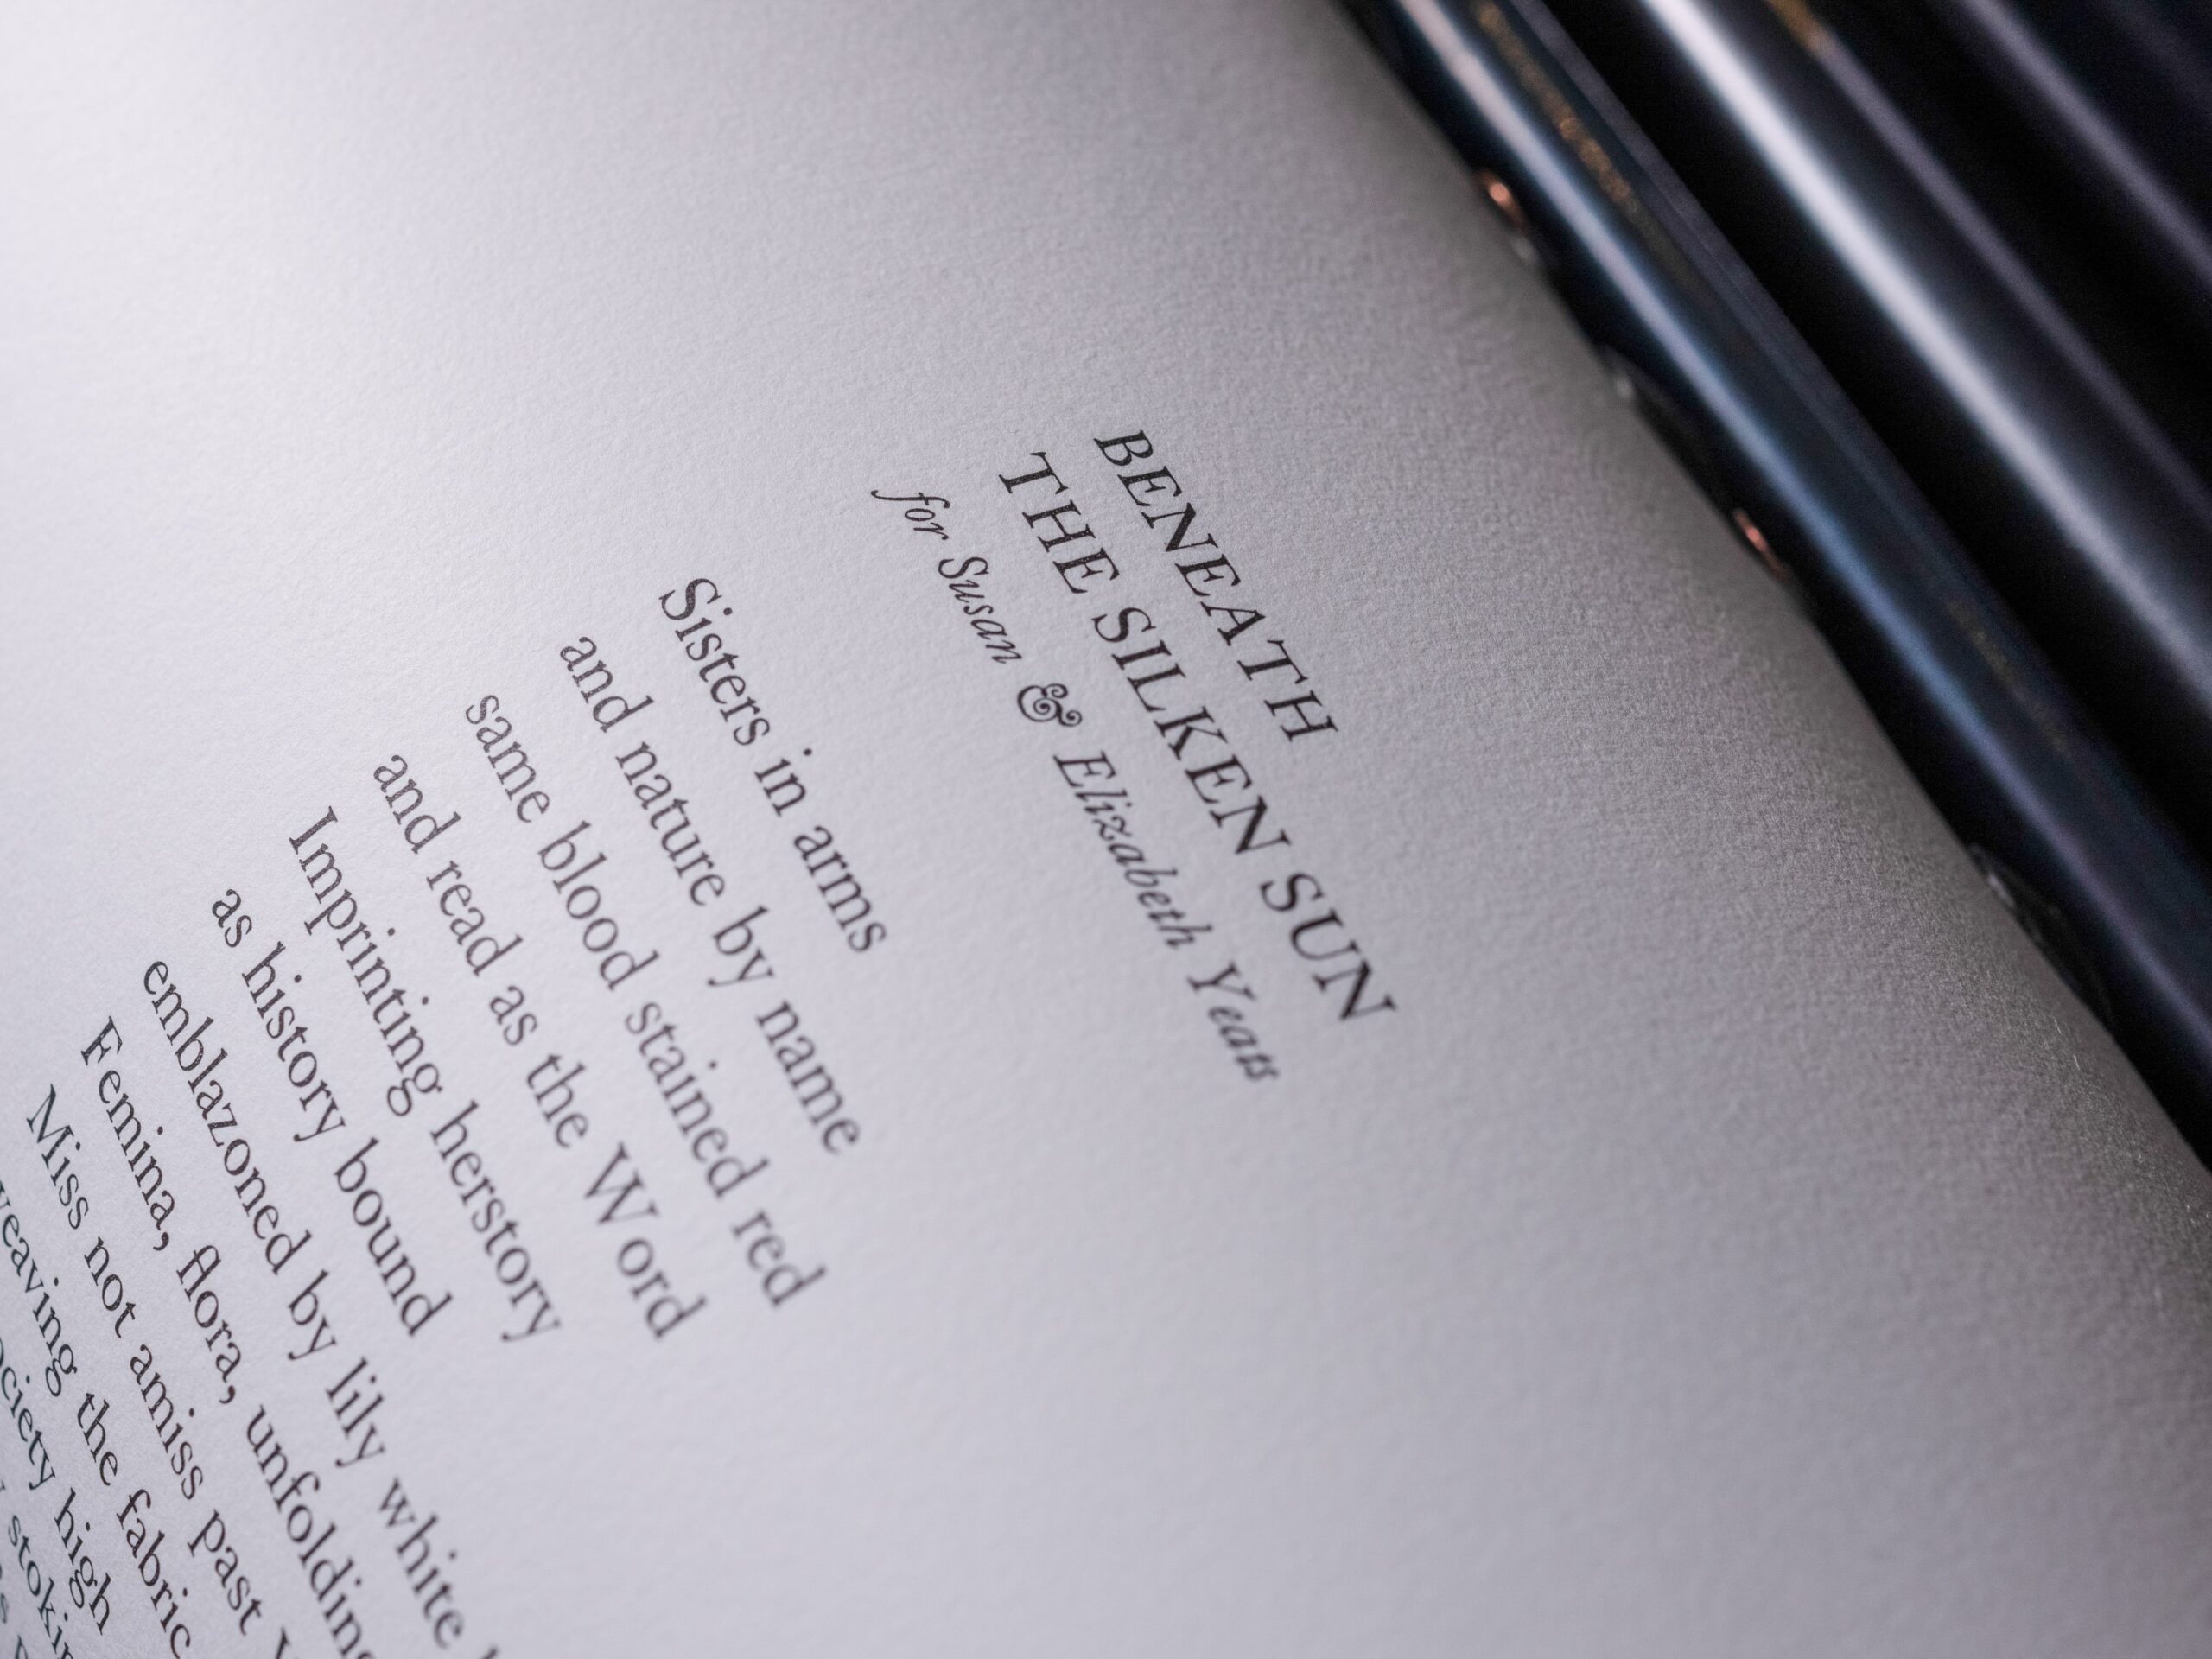 BENEATH
THE SILKEN SUN
for Susan & Elizabeth Yeats
Sisters in arms
and nature by name
same blood stained red
and read as the Word
Imprinting herstory
as history bound
emblazoned by lily white
Femina, flora, unfolding
Miss not amiss past
weaving the fabric
high